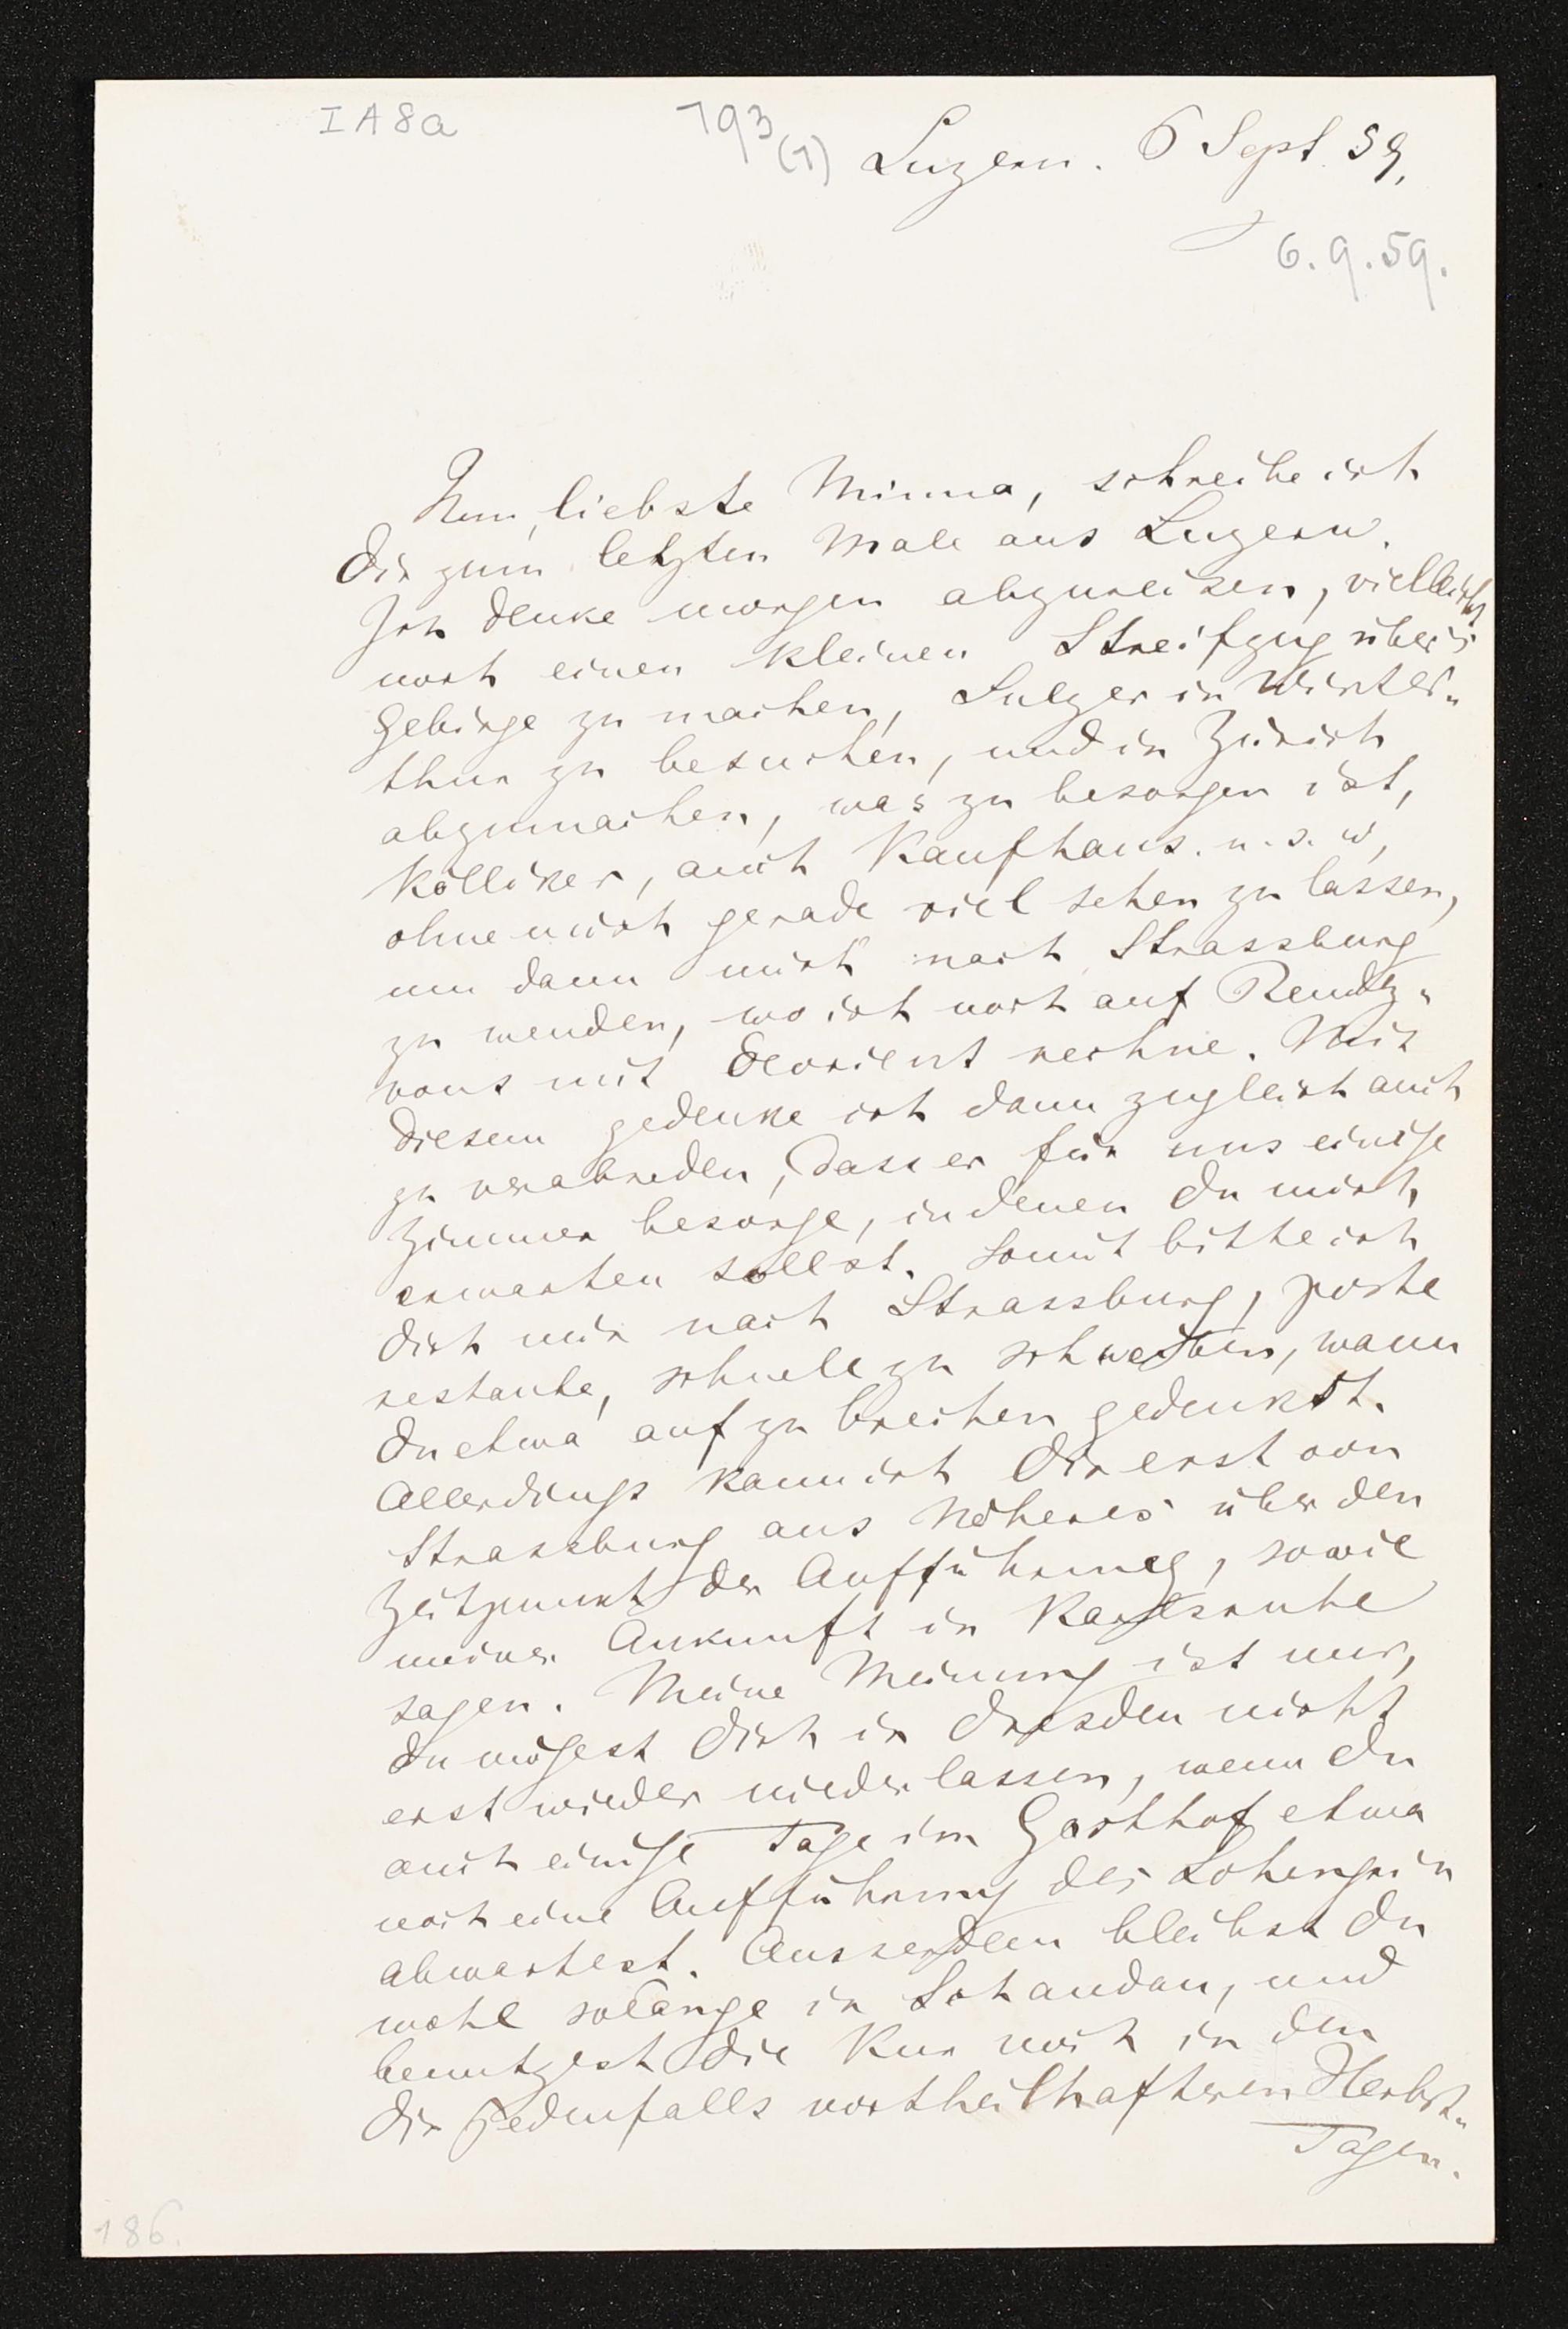 IA8a
793
(1) Luzern. 6 Sept. 59.
6.9.59.
Nun, liebste Minna, schreibe ich
Dir zum letzten Male aus Luzern.
Ich denke morgen abzureisen, vielleicht
noch einen kleinen Streifzug über's
Gebirge zu machen, Sulzer in Winter-
thur zu besuchen, und in Zürich
abzumachen, was zu besorgen ist,
Kölliker, auch Kaufhaus. u. s. w,
ohne mich gerade viel sehen zu lassen,
um dann mich nach Strassburg
zu wenden, wo ich noch auf Rendez-
vous mit Devrient rechne. Mit
diesem gedenke ich dann zugleich auch
zu verabreden, dass er für uns einige
Zimmer besorge, in denen Du mich
erwarten sollst. Somit bitte ich
Dich mir nach Strassburg, poste
restante, schnell zu schreiben, wann
Du etwa aufzubrechen gedenkst.
Allerdings kann ich Dir erst von
Strassburg aus Näheres über den
Zeitpunkt der Aufführung, sowie
meiner Ankunft in Karlsruhe
sagen. Meine Meinung ist nur,
Du mögest Dich in Dresden nicht
erst wieder niederlassen, wenn Du
auch einige Tage im Gasthof etwa
noch eine Aufführung des Lohengrin
abwartest. Ausserdem bleibst Du
wohl solange in Schandau, und
benutzest die Kur noch in den
Dir jedenfalls vortheilhafteren Herbst-
Tagen.
186.